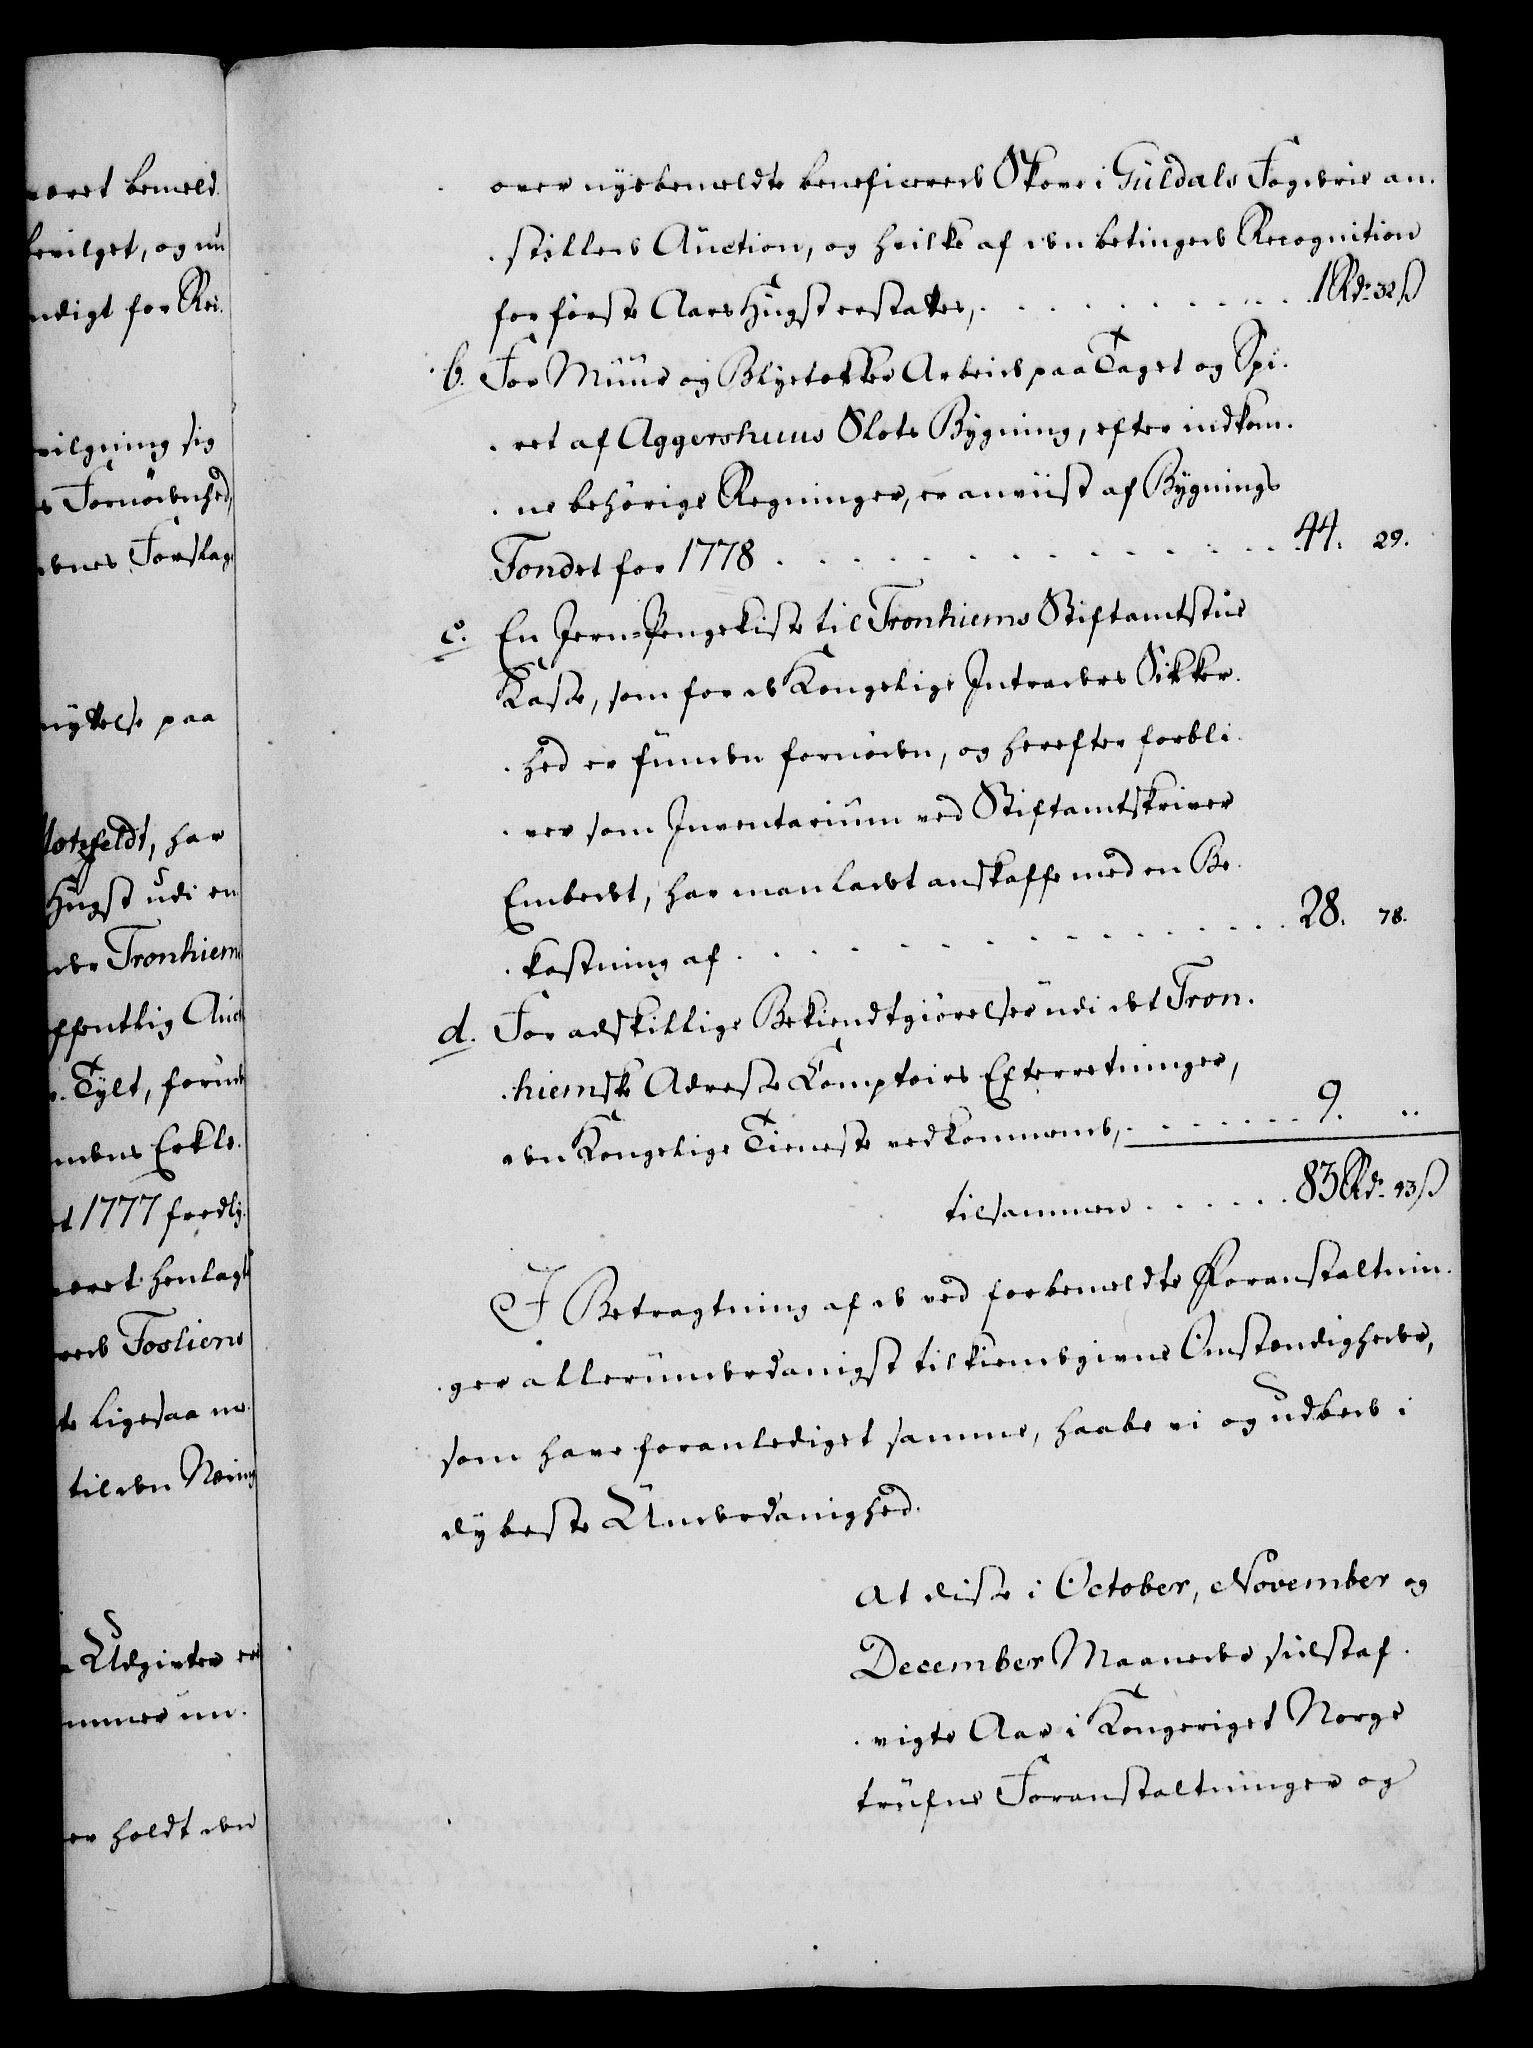 været bemeld.
bevilget, og nu
ndigt for Rei.
vilgning sig
s Fornödenhed,
denes Forslag
nytelse paa
Motzfeldt, har
Hugst udi en
der Tronhiems
offentlig Auct
r. Tylt, forud
ndens Erklæ.
et 1777 foedly.
været henlagt
rede Fosliens
te ligesaa me.
til den Næring
Udgivter er
ummer un.
er holdt den
over nysbemeldte beneficerede Skove i Guldals Fogderie an.
. stillede Auction, og hvilke af den betingede Recognition
for förste Aars Hugst erstattes, . . . . . . . . . 1 Rd. 32 ß
b. For Muur og Blytækker Arbeide paa Taget og Spi.
. ret af Aggershuus Slots Bygning, efter indkom.
. ne behörige Regninger, er anviist af Bygnings
Fondet for 1778 . . . . . . . . . . . . 44. 29.
c. En Jern-Pengekiste til Tronhiems Stiftamtstue
Kasse, som for de Kongelige Intraders Sikker.
. hed er funden fornöden, og herefter forbli.
. ver som Inventarium ved Stiftamtskriver
Embedet, har man ladet anskaffe med en Be.
. kostning af . . . . . . . . . . . . . 28. 78.
d. For adskillige Bekiendtgiörelser udi det Tron.
. hiemske Adresse Comptoirs Efterretninger,
den Kongelige Tieneste vedkommende, . . . . . . . 9. ..
tilsammen . . . . . . 83 Rd. 43 ß
I Betragtning af de ved forbemeldte Foranstaltnin.
. ger allerunderdanigst tilkiendegivne Omstændigheder,
som have foranlediget samme, haabe vi og udbede i
dybeste Underdanighed.
At disse i October, November og
December Maaneder sidstaf.
. vigte Aar i Kongeriget Norge
trufne Foranstaltninger og